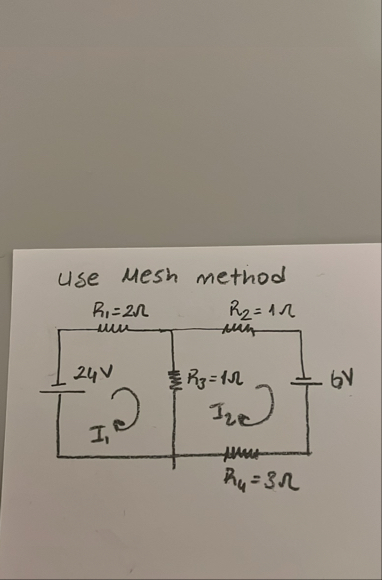 Use Mesh method
R1=2Ω
R2=1Ω
24V
R3=1Ω
6V
I1
I2
R4=3Ω